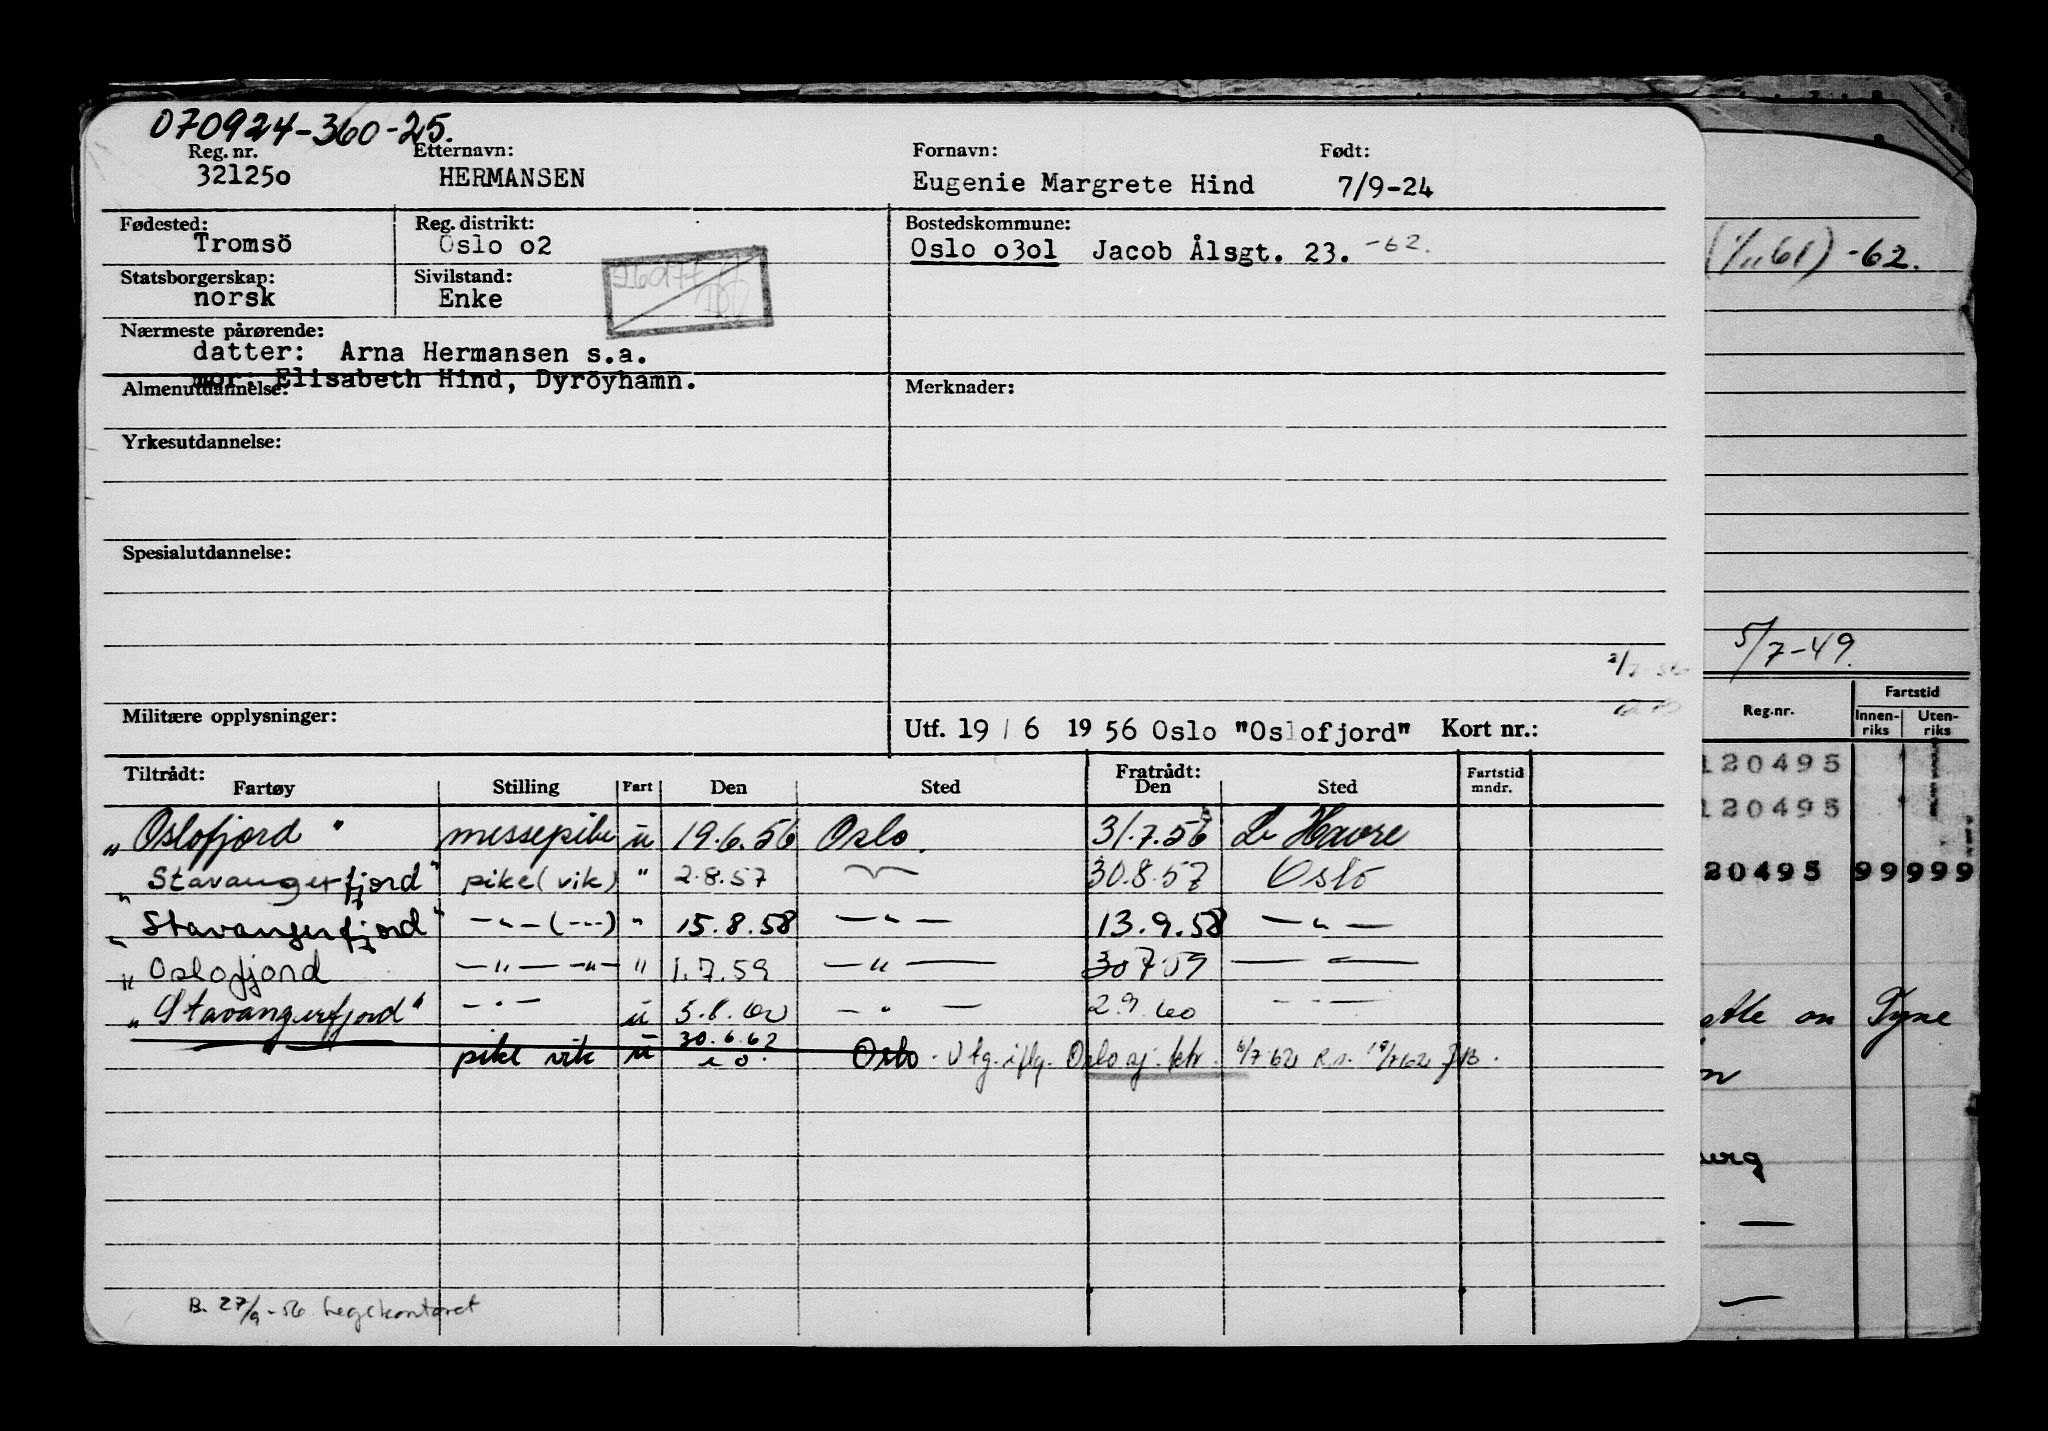 070924-360-25.
Reg. nr. Etternavn: Fornavn: Født:
321250 HERMANSEN Eugenie Margrete Hind 7/9-24
Fødested: Reg. distrikt: Bostedskommune:
Tromsö Oslo o2 Oslo o3o1 Jacob Ålsgt. 23. -62.
Statsborgerskap: Sivilstand:
norsk Enke
Nærmeste pårørende:
datter: Arna Hermansen s.a.
mor: Elisabeth Hind, Dyröyhamn.
Almenutdannelse: Merknader:
Yrkesutdannelse:
Spesialutdannelse:
Militære opplysninger: Utf. 19 / 6 19 56 Oslo "Oslofjord" Kort nr.:
Tiltrådt: Fratrådt: Fartstid
Fartøy Stilling Fart Den Sted Den Sted mndr.
"Oslofjord" messepike u 19.6.56 Oslo. 31.7.56 Le Havre
"Stavangerfjord" pike (vik) " 2.8.57 30.8.57 Oslo
"Stavangerfjord" —"— (---) " 15.8.58 —"— 13.9.58 —"—
"Oslofjord —"— —"— " 1.7.59 —"— 30.7.59 — —
"Stavangerfjord" —"— u 5.8.60 —"— 2.9.60 —
pike vik u 30.6.62 Oslo. Utg. iflg. Oslo sj. ktr. 6/7 62
B. 27/9-56 Legekontoret
-62.
5/7-49.
Reg.nr. Fartstid
Innen-riks Uten-riks
120495
120495
20495 99999
on Tyne